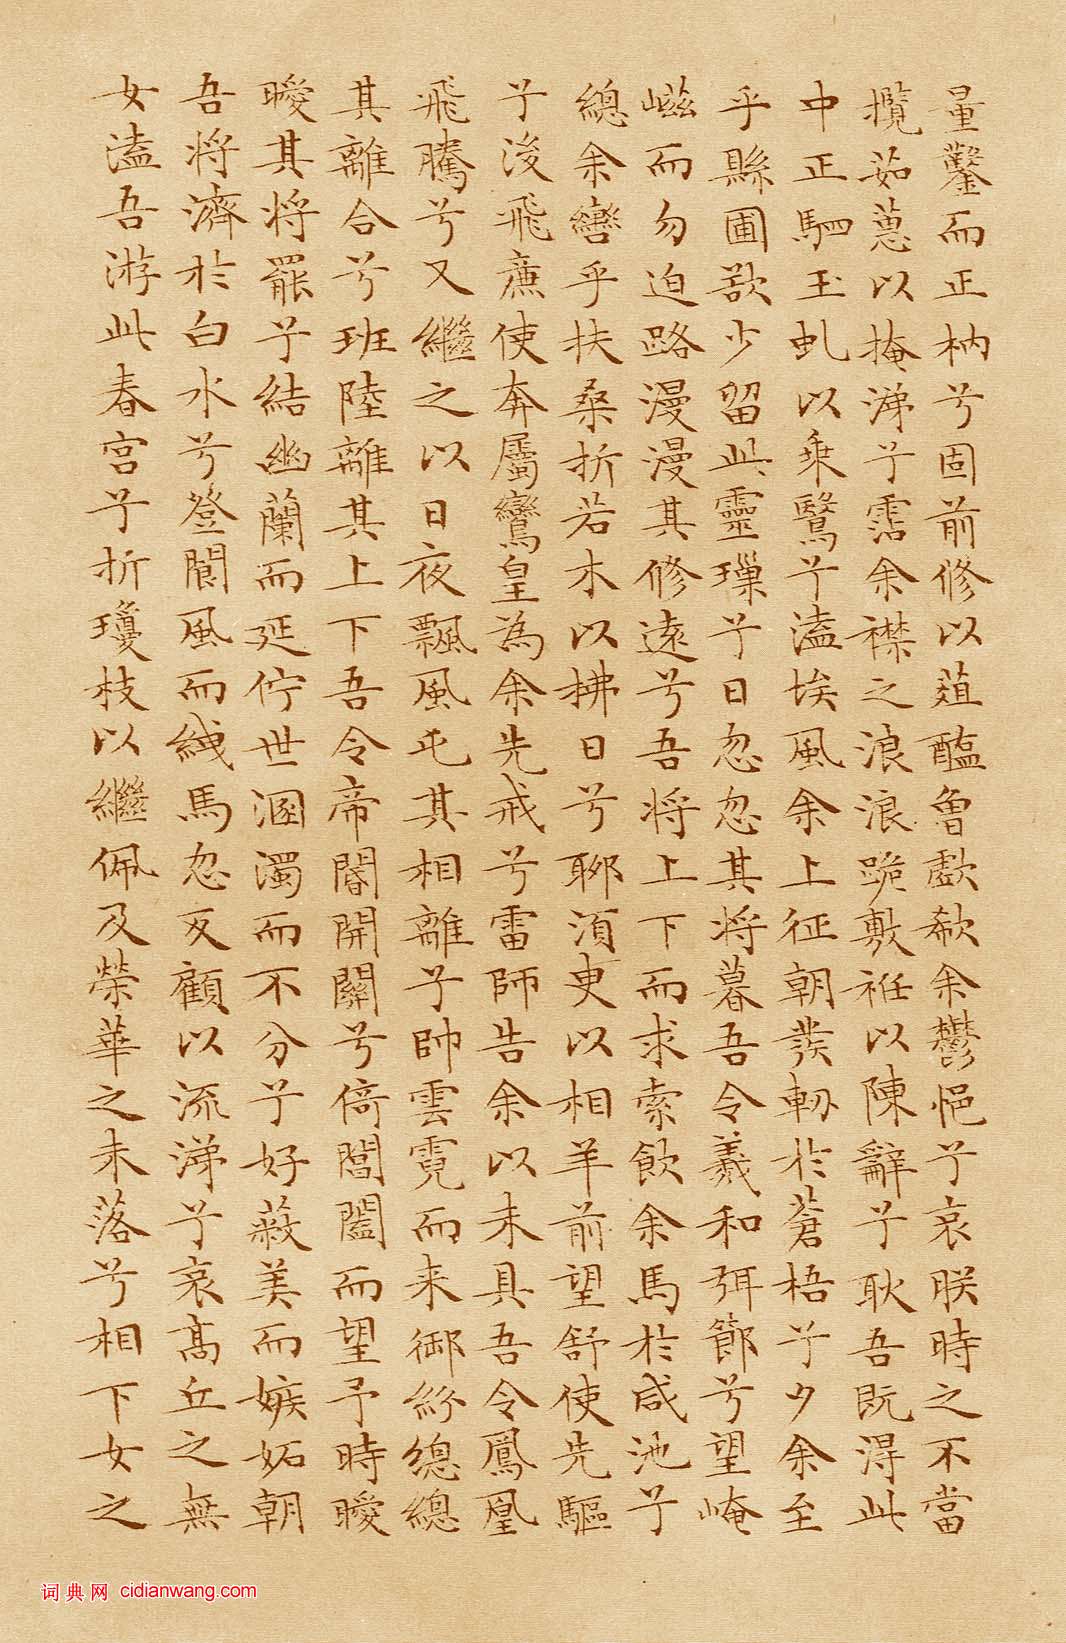 量鑿而正枘兮固前修以菹醢曾歔欷余鬱悒兮哀朕時之不當
攬茹蕙以掩涕兮霑余襟之浪浪跪敷衽以陳辭兮耿吾既得此
中正駟玉虬以乘鷖兮溘埃風余上征朝發軔於蒼梧兮夕余至
乎縣圃欲少留此靈璅兮日忽忽其將暮吾令羲和弭節兮望崦
嵫而勿迫路漫漫其修遠兮吾將上下而求索飲余馬於咸池兮
總余轡乎扶桑折若木以拂日兮聊須臾以相羊前望舒使先驅
兮後飛廉使奔屬鸞皇為余先戒兮雷師告余以未具吾令鳳凰
飛騰兮又繼之以日夜飄風屯其相離兮帥雲霓而来御紛總總
其離合兮班陸離其上下吾令帝閽開關兮倚閶闔而望予時曖
曖其將罷兮結幽蘭而延佇世溷濁而不分兮好蔽美而嫉妬朝
吾將濟於白水兮登閬風而緤馬忽反顧以流涕兮哀高丘之無
女溘吾游此春宮兮折瓊枝以繼佩及榮華之未落兮相下女之
词典网 cidianwang.com